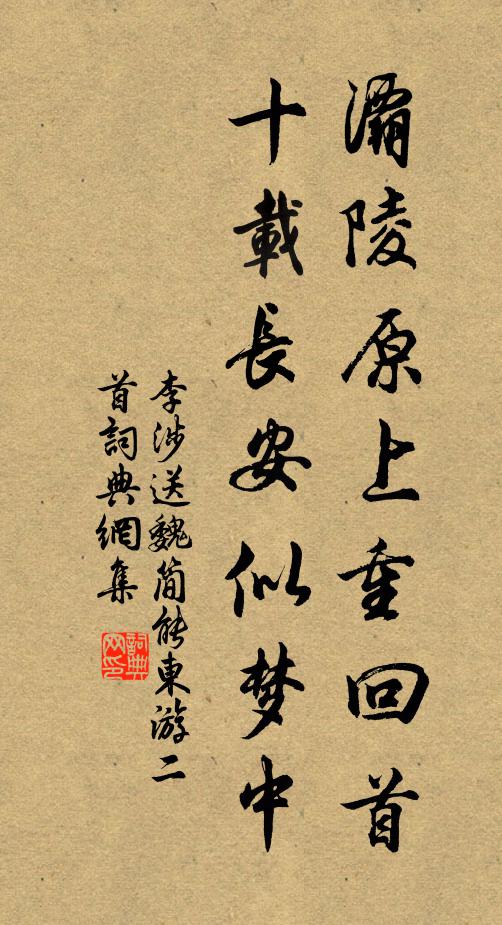 灞陵原上重回首
十載長安似梦中
李涉送魏简能東游二
首詞典網集
詞典
网印